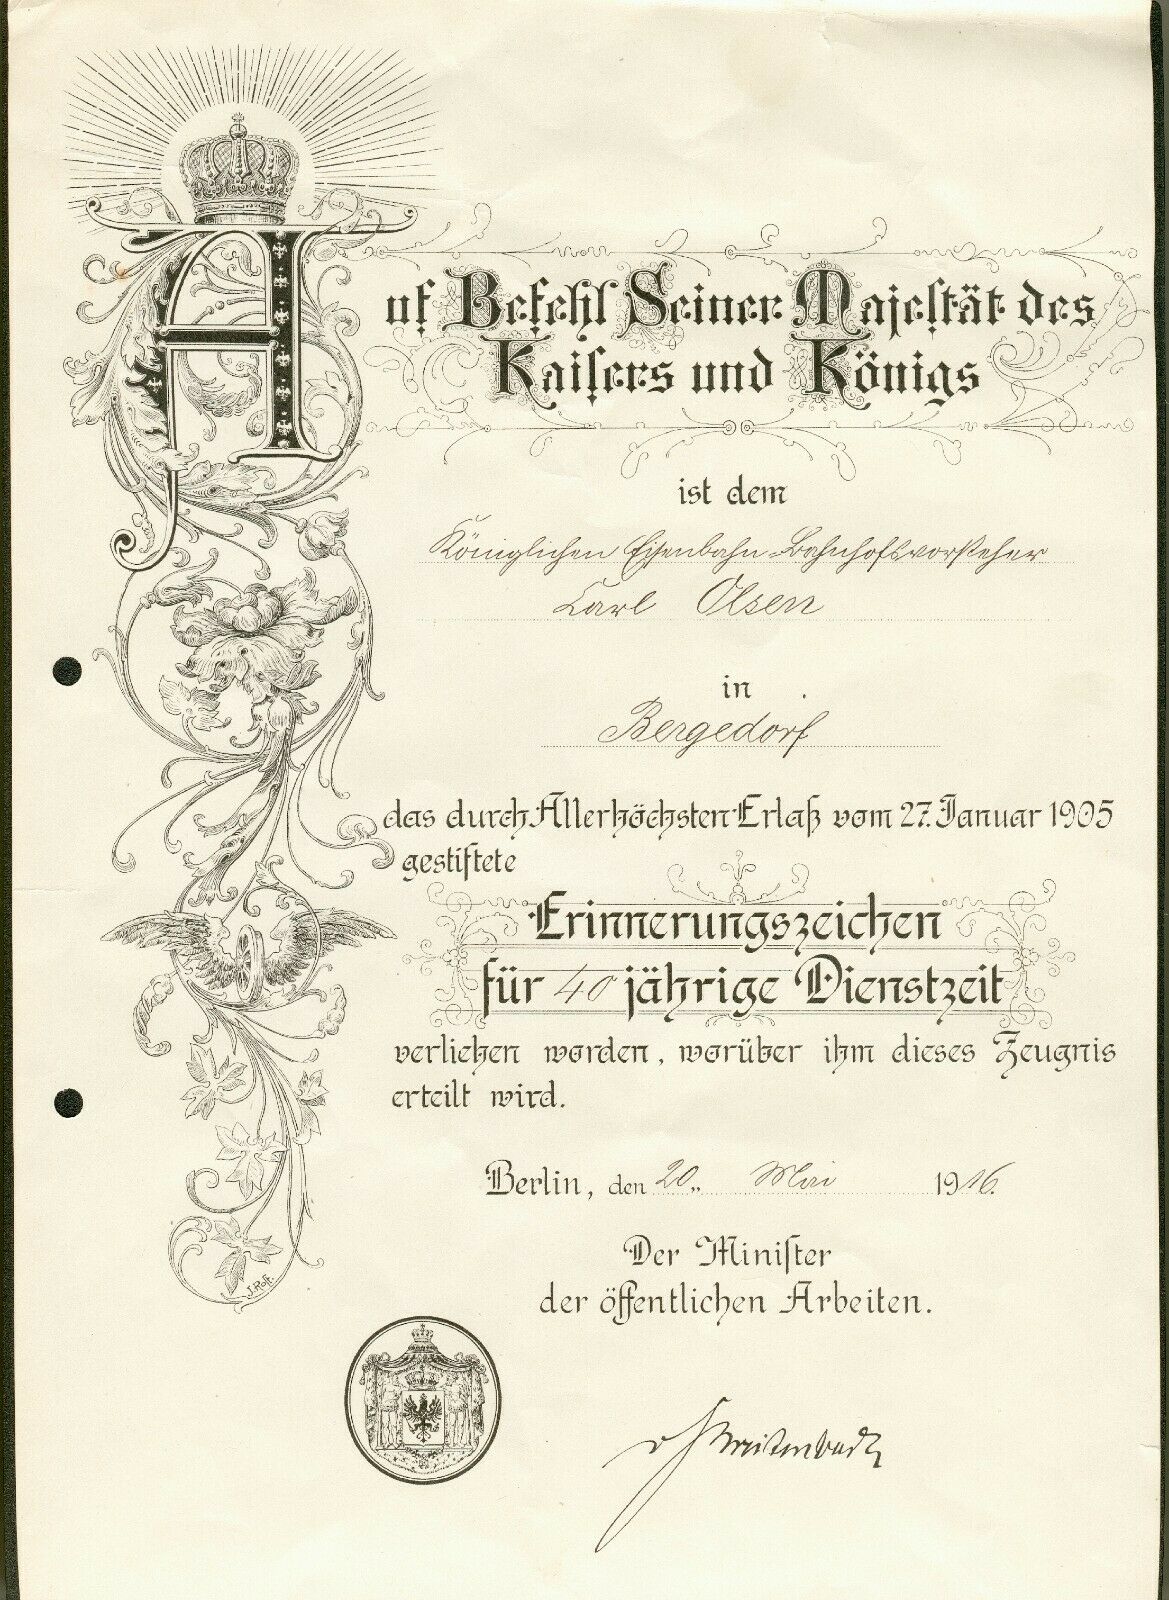 Auf Befehl Seiner Majestät des
Kaisers und Königs
ist dem
Königlichen Eisenbahn-Bahnhofsvorsteher
Carl Olsen
in
Bergedorf
das durch Allerhöchsten Erlaß vom 27. Januar 1905
gestiftete
Erinnerungszeichen
für 40 jährige Dienstzeit
verliehen worden, worüber ihm dieses Zeugnis
erteilt wird.
Berlin, den 20. Mai 1916.
Der Minister
der öffentlichen Arbeiten.
v Breitenbach